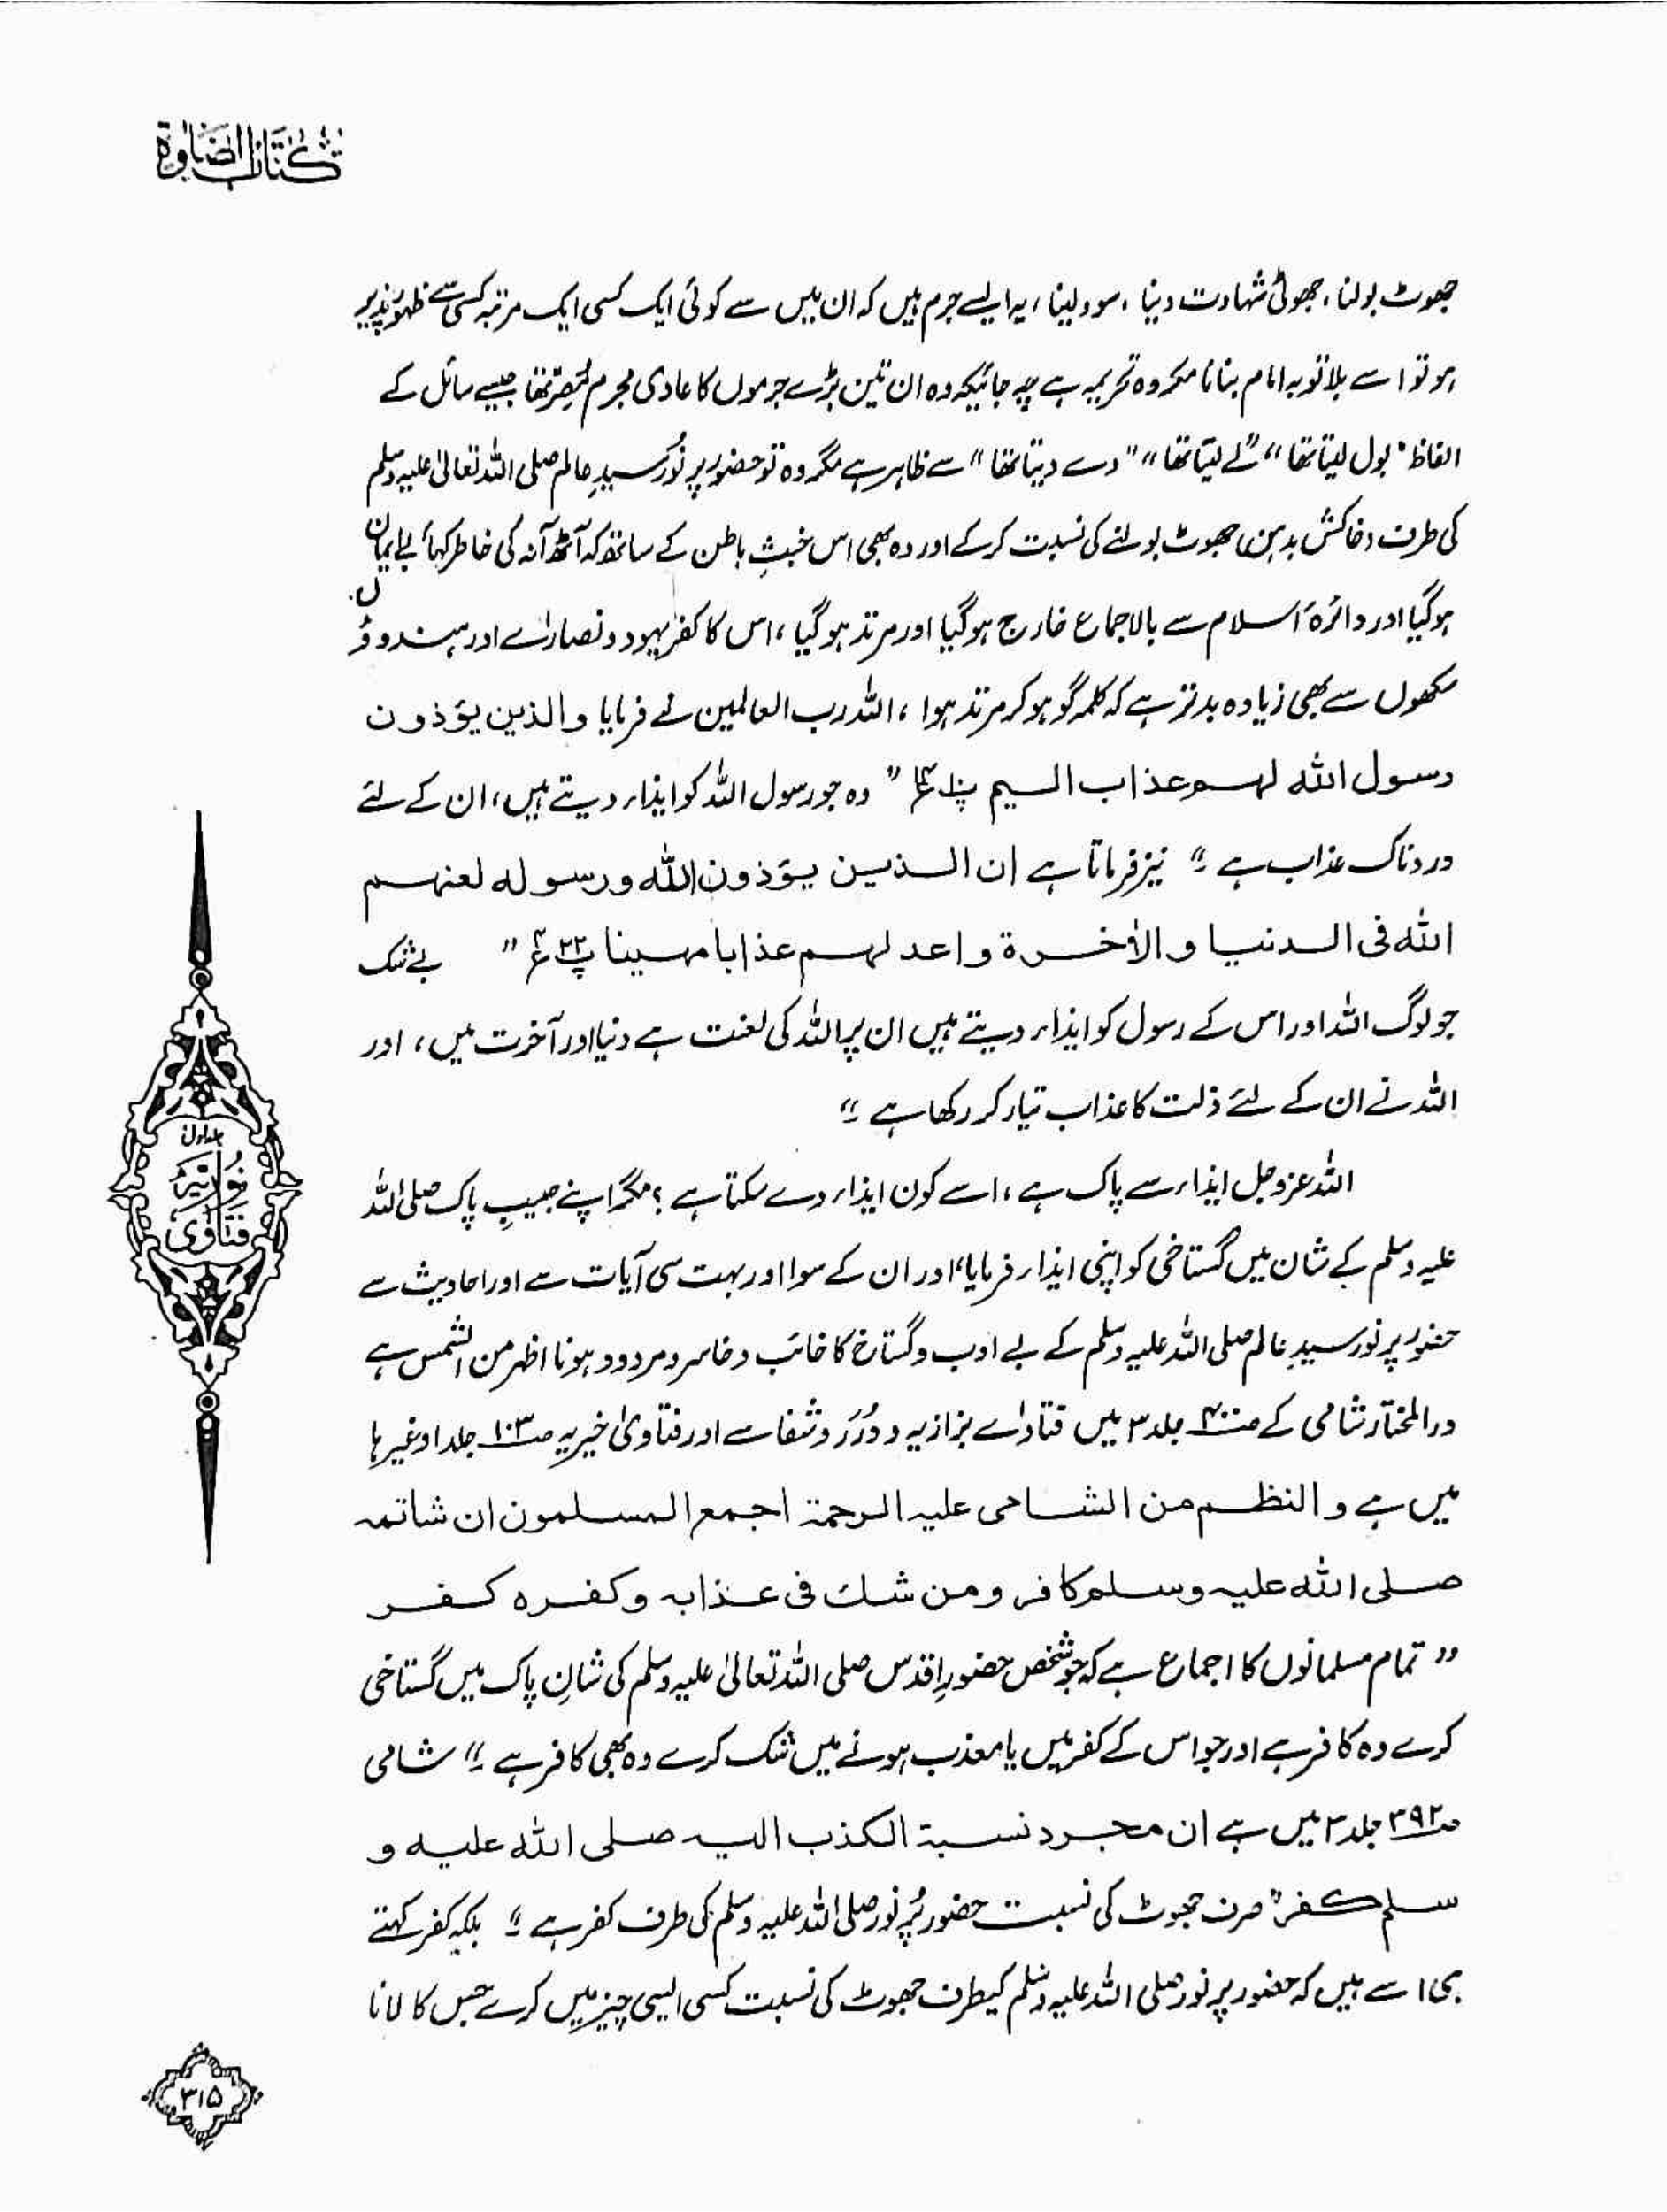 كتاب الصلوة
جھوٹ بولنا، جھوٹی شہادت دینا، سود لینا، یہ ایسے جرم ہیں کہ ان میں سے کوئی ایک کسی ایک مرتبہ کسی سے ظہور پذیر
ہو تو اسے بلا توبہ امام بنانا مکروہ تحریمہ ہے چہ جائیکہ وہ ان تین بڑے جرموں کا عادی مجرم مُصِر تھا جیسے سائل کے
الفاظ "بول لیتا تھا" "لے لیتا تھا" "دے دیتا تھا" سے ظاہر ہے مگر وہ تو حضور پر نُور سیدِ عالم صلی اللہ تعالیٰ علیہ وسلم
کی طرف (خاکش بدہن) جھوٹ بولنے کی نسبت کرکے اور وہ بھی اس خبثِ باطن کے ساتھ کہ آٹھ آنہ کی خاطر کہا، بے ایمان
ہوگیا اور دائرۂ اسلام سے بالاجماع خارج ہوگیا اور مرتد ہوگیا، اس کا کفر یہود و نصاراے اور ہندوؤں،
سکھوں سے بھی زیادہ بدتر ہے کہ کلمہ گو ہو کر مرتد ہوا، اللہ رب العالمین نے فرمایا والذین یؤذون
رسول اللہ لہم عذاب الیم پ۱۰ ع۱۴ " وہ جو رسول اللہ کو ایذاء دیتے ہیں، ان کے لئے
دردناک عذاب ہے " نیز فرماتا ہے ان الذین یؤذون اللہ ورسولہ لعنہم
اللہ فی الدنیا والاٰخرة واعد لہم عذابا مہینا پ۲۲ ع۴ " بے شک
جو لوگ اللہ اور اس کے رسول کو ایذاء دیتے ہیں ان پر اللہ کی لعنت ہے دنیا اور آخرت میں، اور
اللہ نے ان کے لئے ذلت کا عذاب تیار کر رکھا ہے "
اللہ عزوجل ایذاء سے پاک ہے، اسے کون ایذاء دے سکتا ہے؟ مگر اپنے حبیبِ پاک صلی اللہ
علیہ وسلم کے شان میں گستاخی کو اپنی ایذاء فرمایا، اور ان کے سوا اور بہت سی آیات سے اور احادیث سے
حضور پر نور سیدِ عالم صلی اللہ علیہ وسلم کے بے ادب و گستاخ کا خائب و خاسر و مردود ہونا اظہر من الشمس ہے
درالمختار شامی کے ص۴۰۰ جلد ۳ میں فتاواے بزازیہ و دُرَر و شفا سے اور فتاویٰ خیریہ ص۱۰۳ جلد ا وغیرہا
میں ہے والنظم من الشامی علیہ الرحمۃ اجمع المسلمون ان شاتمہ
صلی اللہ علیہ وسلم کافر ومن شک فی عذابہ وکفرہ کفر
" تمام مسلمانوں کا اجماع ہے کہ جو شخص حضورِ اقدس صلی اللہ تعالیٰ علیہ وسلم کی شانِ پاک میں گستاخی
کرے وہ کافر ہے اور جو اس کے کفر میں یا معذب ہونے میں شک کرے وہ بھی کافر ہے " شامی
ص۳۹۲ جلد ۳ میں ہے ان مجرد نسبۃ الکذب الیہ صلی اللہ علیہ و
سلم کفر " صرف جھوٹ کی نسبت حضور پُر نور صلی اللہ علیہ وسلم کی طرف کفر ہے " بلکہ کفر کہتے
ہی اسے ہیں کہ حضور پر نور صلی اللہ علیہ وسلم کیطرف جھوٹ کی نسبت کسی ایسی چیز میں کرے جس کا لانا
جلد اول
نُورِیَّہ
فَتَاوٰی
۳۱۵